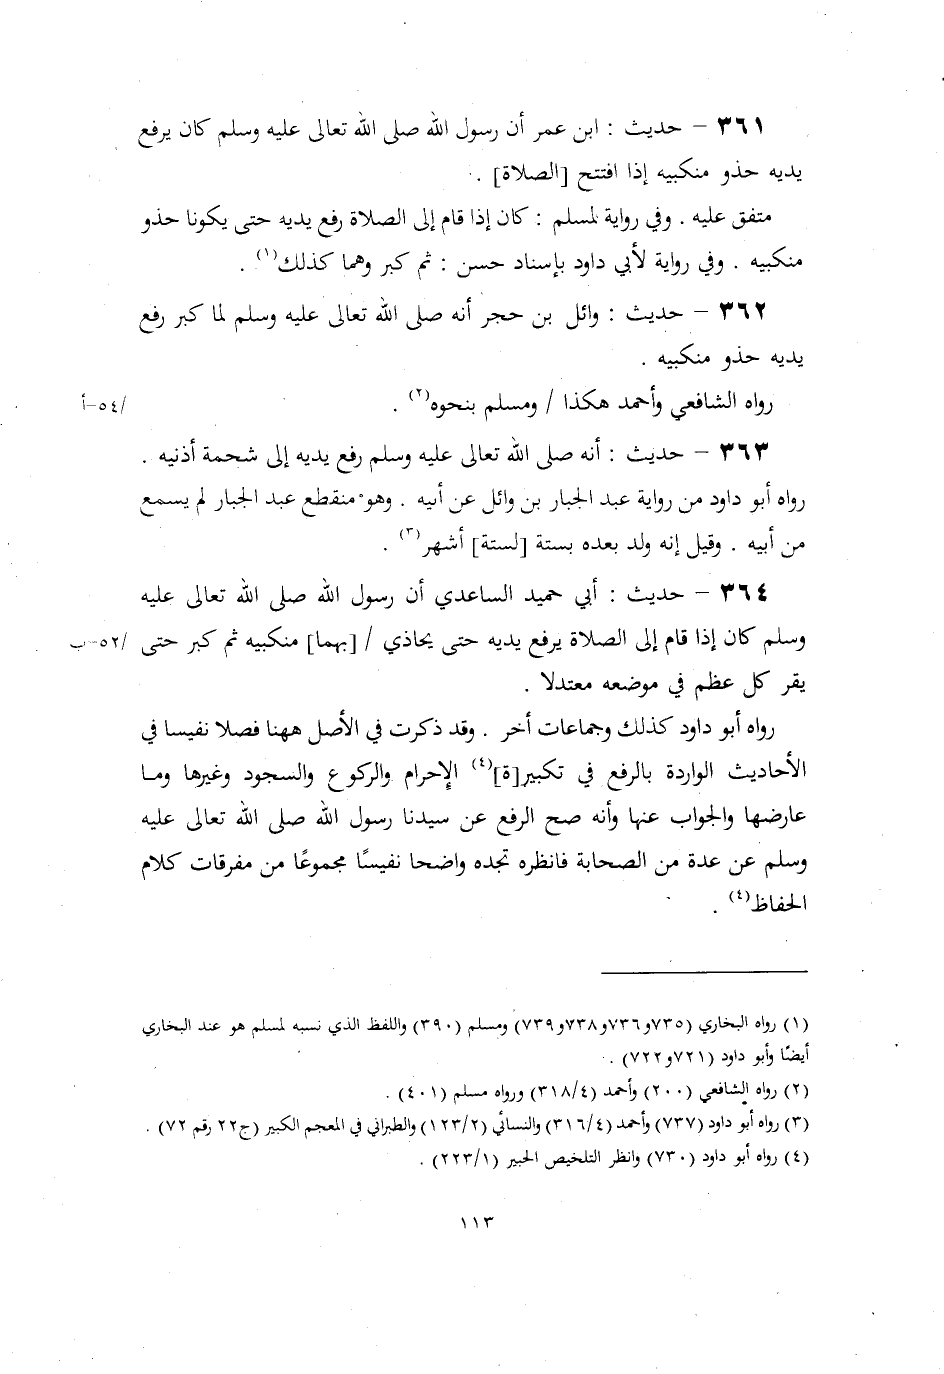 ٣٦١ – حديث : ابن عمر أن رسول الله صلى الله تعالى عليه وسلم كان يرفع
يديه حذو منكبيه إذا افتتح [الصلاة] .
متفق عليه . وفي رواية لمسلم : كان إذا قام إلى الصلاة رفع يديه حتى يكونا حذو
منكبيه . وفي رواية لأبي داود بإسناد حسن : ثم كبر وهما كذلك(١) .
٣٦٢ – حديث : وائل بن حجر أنه صلى الله تعالى عليه وسلم لما كبر رفع
يديه حذو منكبيه .
رواه الشافعي وأحمد هكذا / ومسلم بنحوه(٢) .
/٥٤–أ
٣٦٣ – حديث : أنه صلى الله تعالى عليه وسلم رفع يديه إلى شحمة أذنيه .
رواه أبو داود من رواية عبد الجبار بن وائل عن أبيه . وهو منقطع عبد الجبار لم يسمع
من أبيه . وقيل إنه ولد بعده بستة [لستة] أشهر(٣) .
٣٦٤ – حديث : أبي حميد الساعدي أن رسول الله صلى الله تعالى عليه
وسلم كان إذا قام إلى الصلاة يرفع يديه حتى يحاذي / [بهما] منكبيه ثم كبر حتى
/٥٢–ب
يقر كل عظم في موضعه معتدلا .
رواه أبو داود كذلك وجماعات أخر . وقد ذكرت في الأصل ههنا فصلا نفيسا في
الأحاديث الواردة بالرفع في تكبير[ة](٤) الإحرام والركوع والسجود وغيرها وما
عارضها والجواب عنها وأنه صح الرفع عن سيدنا رسول الله صلى الله تعالى عليه
وسلم عن عدة من الصحابة فانظره تجده واضحا نفيسًا مجموعًا من مفرقات كلام
الحفاظ(٤) .
(١) رواه البخاري (٧٣٥و٧٣٦و٧٣٨و٧٣٩) ومسلم (٣٩٠) واللفظ الذي نسبه لمسلم هو عند البخاري
أيضًا وأبو داود (٧٢١و٧٢٢) .
(٢) رواه الشافعي (٢٠٠) وأحمد (٣١٨/٤) ورواه مسلم (٤٠١) .
(٣) رواه أبو داود (٧٣٧) وأحمد (٣١٦/٤) والنسائي (١٢٣/٢) والطبراني في المعجم الكبير (ج٢٢ رقم ٧٢) .
(٤) رواه أبو داود (٧٣٠) وانظر التلخيص الحبير (٢٢٣/١) .
١١٣